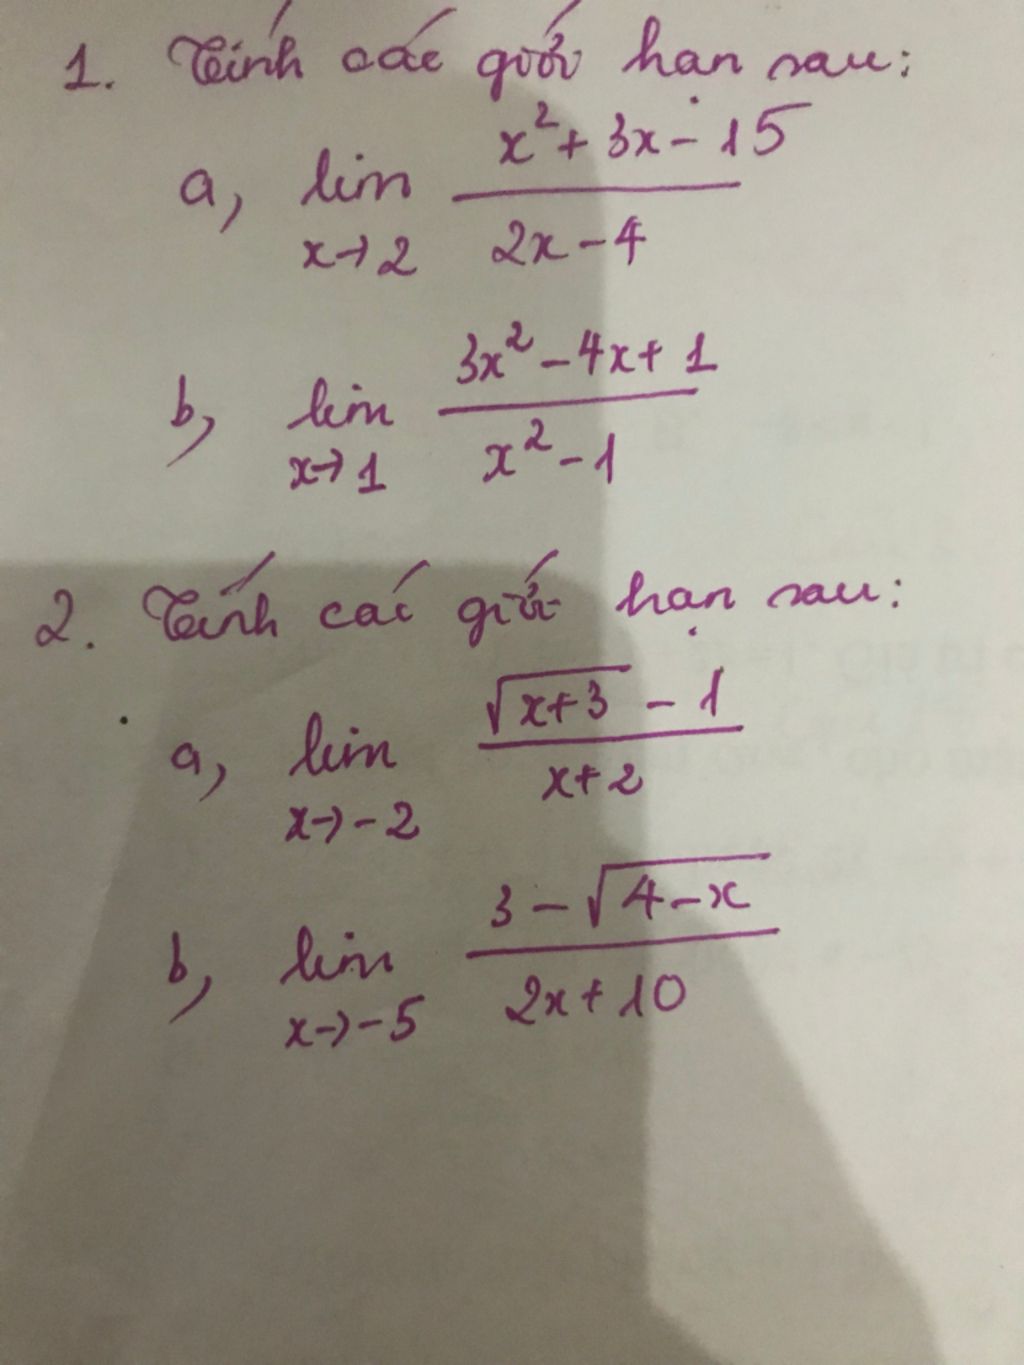 1. Tính các giới hạn sau:
a, lim x→2 (x² + 3x - 15)/(2x - 4)
b, lim x→1 (3x² - 4x + 1)/(x² - 1)
2. Tính các giới hạn sau:
a, lim x→-2 (√(x+3) - 1)/(x+2)
b, lim x→-5 (3 - √(4-x))/(2x + 10)